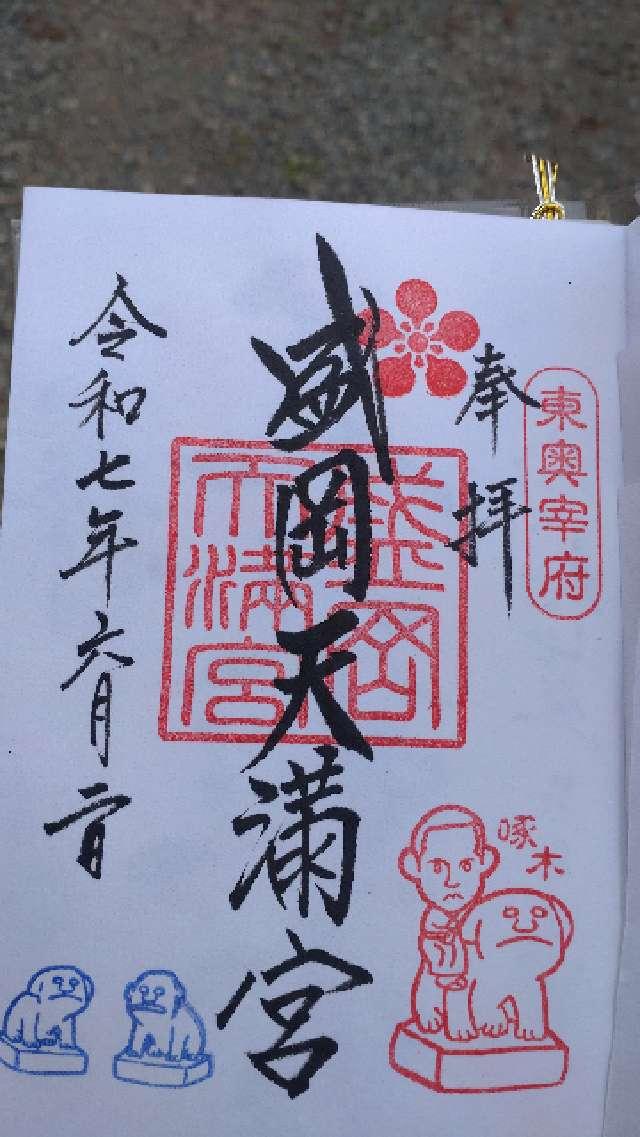 東奥宰府
奉拝
盛岡天満宮
盛岡天満宮
啄木
令和七年六月二日